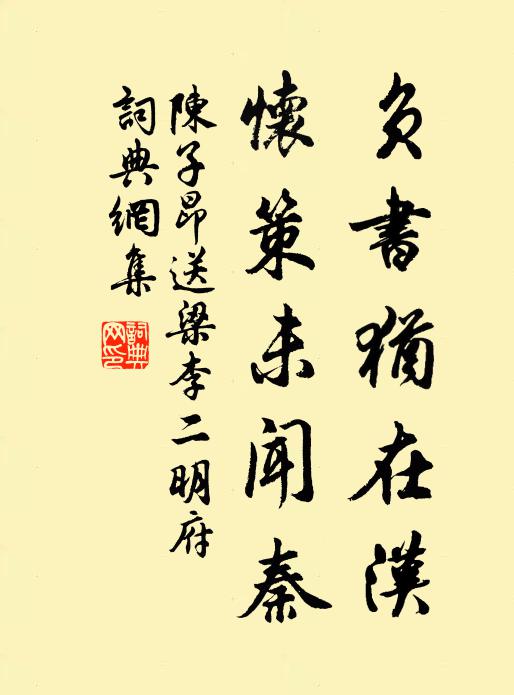 負書猶在漢
懷策未聞秦
陳子昂送梁李二明府
詞典網集
詞典
网印